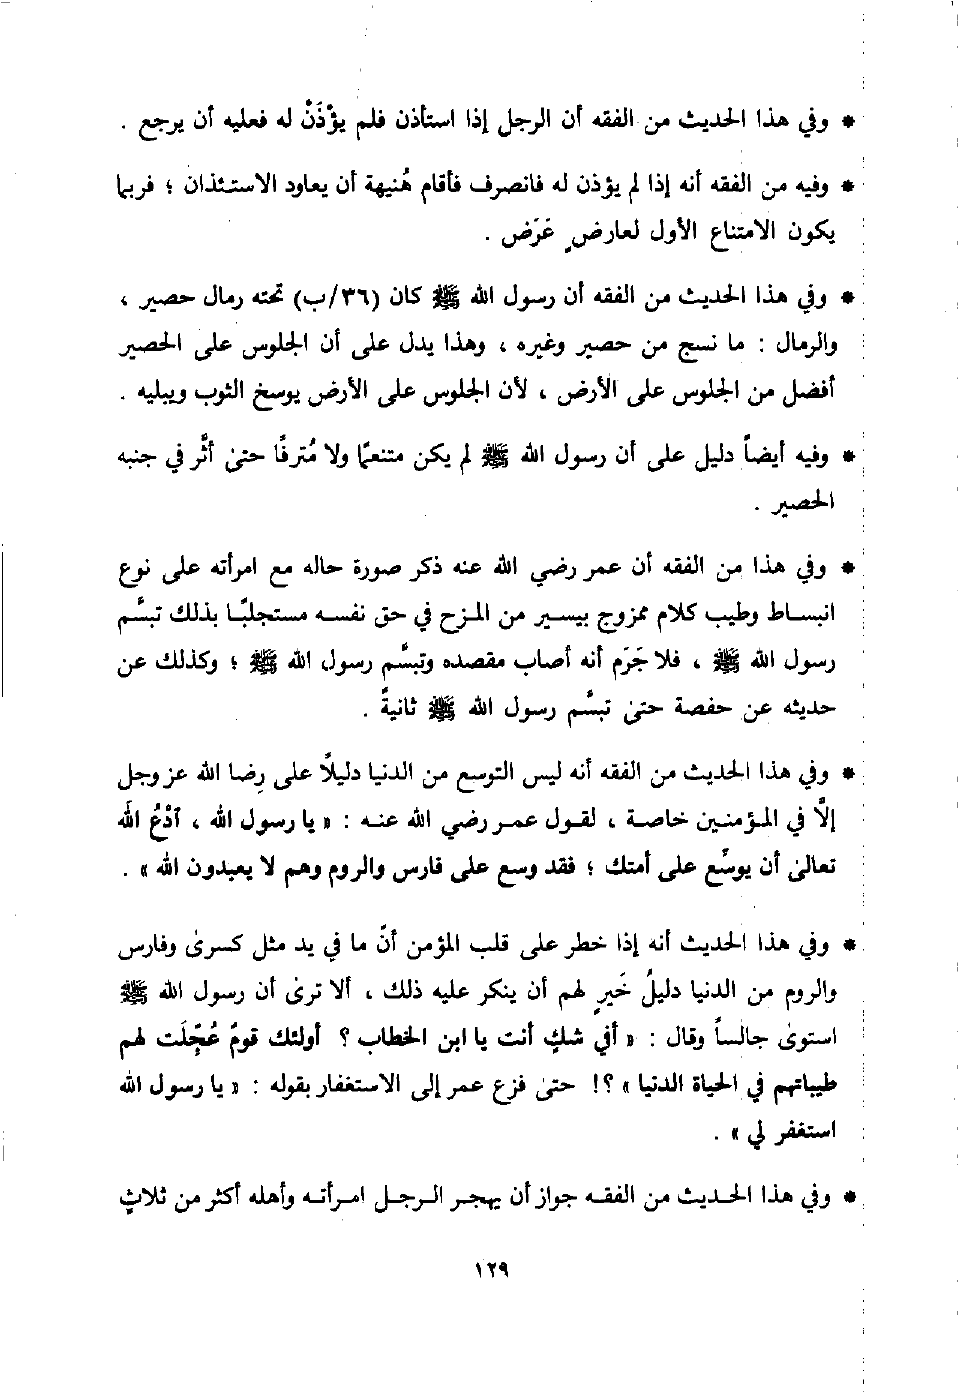 * وفي هذا الحديث من الفقه أن الرجل إذا استأذن فلم يؤْذَنْ له فعليه أن يرجع .
* وفيه من الفقه أنه إذا لم يؤذن له فانصرف فأقام هُنيهة أن يعاود الاستئذان ؛ فربما
يكون الامتناع الأول لعارضٍ عَرَض .
* وفي هذا الحديث من الفقه أن رسول الله ﷺ كان (٣٦/ب) تحته رمال حصير ،
والرمال : ما نسج من حصير وغيره ، وهذا يدل على أن الجلوس على الحصير
أفضل من الجلوس على الأرض ، لأن الجلوس على الأرض يوسخ الثوب ويبليه .
* وفيه أيضاً دليل على أن رسول الله ﷺ لم يكن متنعمًا ولا مُترفًا حتىٰ أثَّر في جنبه
الحصير .
* وفي هذا من الفقه أن عمر رضي الله عنه ذكر صورة حاله مع امرأته على نوع
انبساط وطيب كلام ممزوج بيسير من المزح في حق نفسه مستجلبًا بذلك تبسُّم
رسول الله ﷺ ، فلا جَرَم أنه أصاب مقصده وتبسَّم رسول الله ﷺ ؛ وكذلك عن
حديثه عن حفصة حتىٰ تبسَّم رسول الله ﷺ ثانيةً .
* وفي هذا الحديث من الفقه أنه ليس التوسع من الدنيا دليلًا على رِضا الله عز وجل
إلَّا في المؤمنين خاصة ، لقول عمر رضي الله عنه : « يا رسول الله ، ٱدْعُ اللَه
تعالىٰ أن يوسِّع على أمتك ؛ فقد وسع على فارس والروم وهم لا يعبدون الله » .
* وفي هذا الحديث أنه إذا خطر على قلب المؤمن أنّ ما في يد مثل كسرىٰ وفارس
والروم من الدنيا دليلُ خَيرٍ لهم أن ينكر عليه ذلك ، ألا ترىٰ أن رسول الله ﷺ
استوىٰ جالساً وقال : « أفي شكٍ أنت يا ابن الخطاب ؟ أولئك قومٌ عُجِّلَت لهم
طيباتهم في الحياة الدنيا » ؟! حتىٰ فزع عمر إلى الاستغفار بقوله : « يا رسول الله
استغفر لي » .
* وفي هذا الحديث من الفقه جواز أن يهجر الرجل امرأته وأهله أكثر من ثلاثٍ
١٢٩